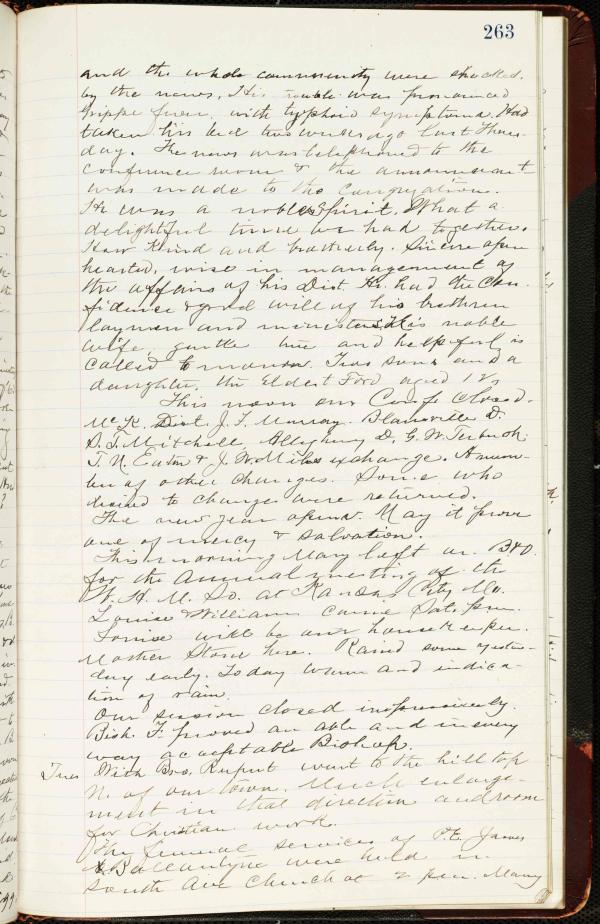 263
and the whole community were shocked.
by the news. His trouble was pronounced
Grippe fever, with typhoid symptoms. Had
taken his bed two weeks ago last Thurs-
day. The news was telephoned to the
Conference room & the announcement
was made to the Congregation.
He was a noble spirit. What a
delightful time we had together.
How Kind and brotherly. Sincere open
hearted, wise in management of
the affairs of his Dist. He had the Con-
fidence & good will of his brethren
laymen and ministers. His noble
wife, gentle true and helpful, is
called to mourn. Two sons and a
daughter, the Eldest Ford aged 12
This noon our Conf. closed.
McK. Dist. J. F. Murray. Blairsville D.
S. T. Mitchell, Allegheny D. G. W. Terbush.
T. N. Eaton & J. W. Miles exchange. A num-
ber of other changes. Some who
desired to change were returned.
The new year opens. May it prove
one of mercy & salvation.
This morning Mary left on B&O.
for the annual meeting of the
W. H. M. So. at Kansas City Mo.
Louise & William came Sat. P.M.
Louise will be our house keeper.
Mother Stone here. Rained some yester-
day early. Today warm and indica-
tion of rain.
Our session closed impressively.
Bish. F. proved an able and in every
way acceptable Bishop.
Tues With Bro. Rupert went to the hill top
N. of our town. Much enlarge-
ment in that direction and room
for Christian work.
The funeral services of P. E. James
A Ballantyne were held in
South Ave Church at 2 p.m. Many